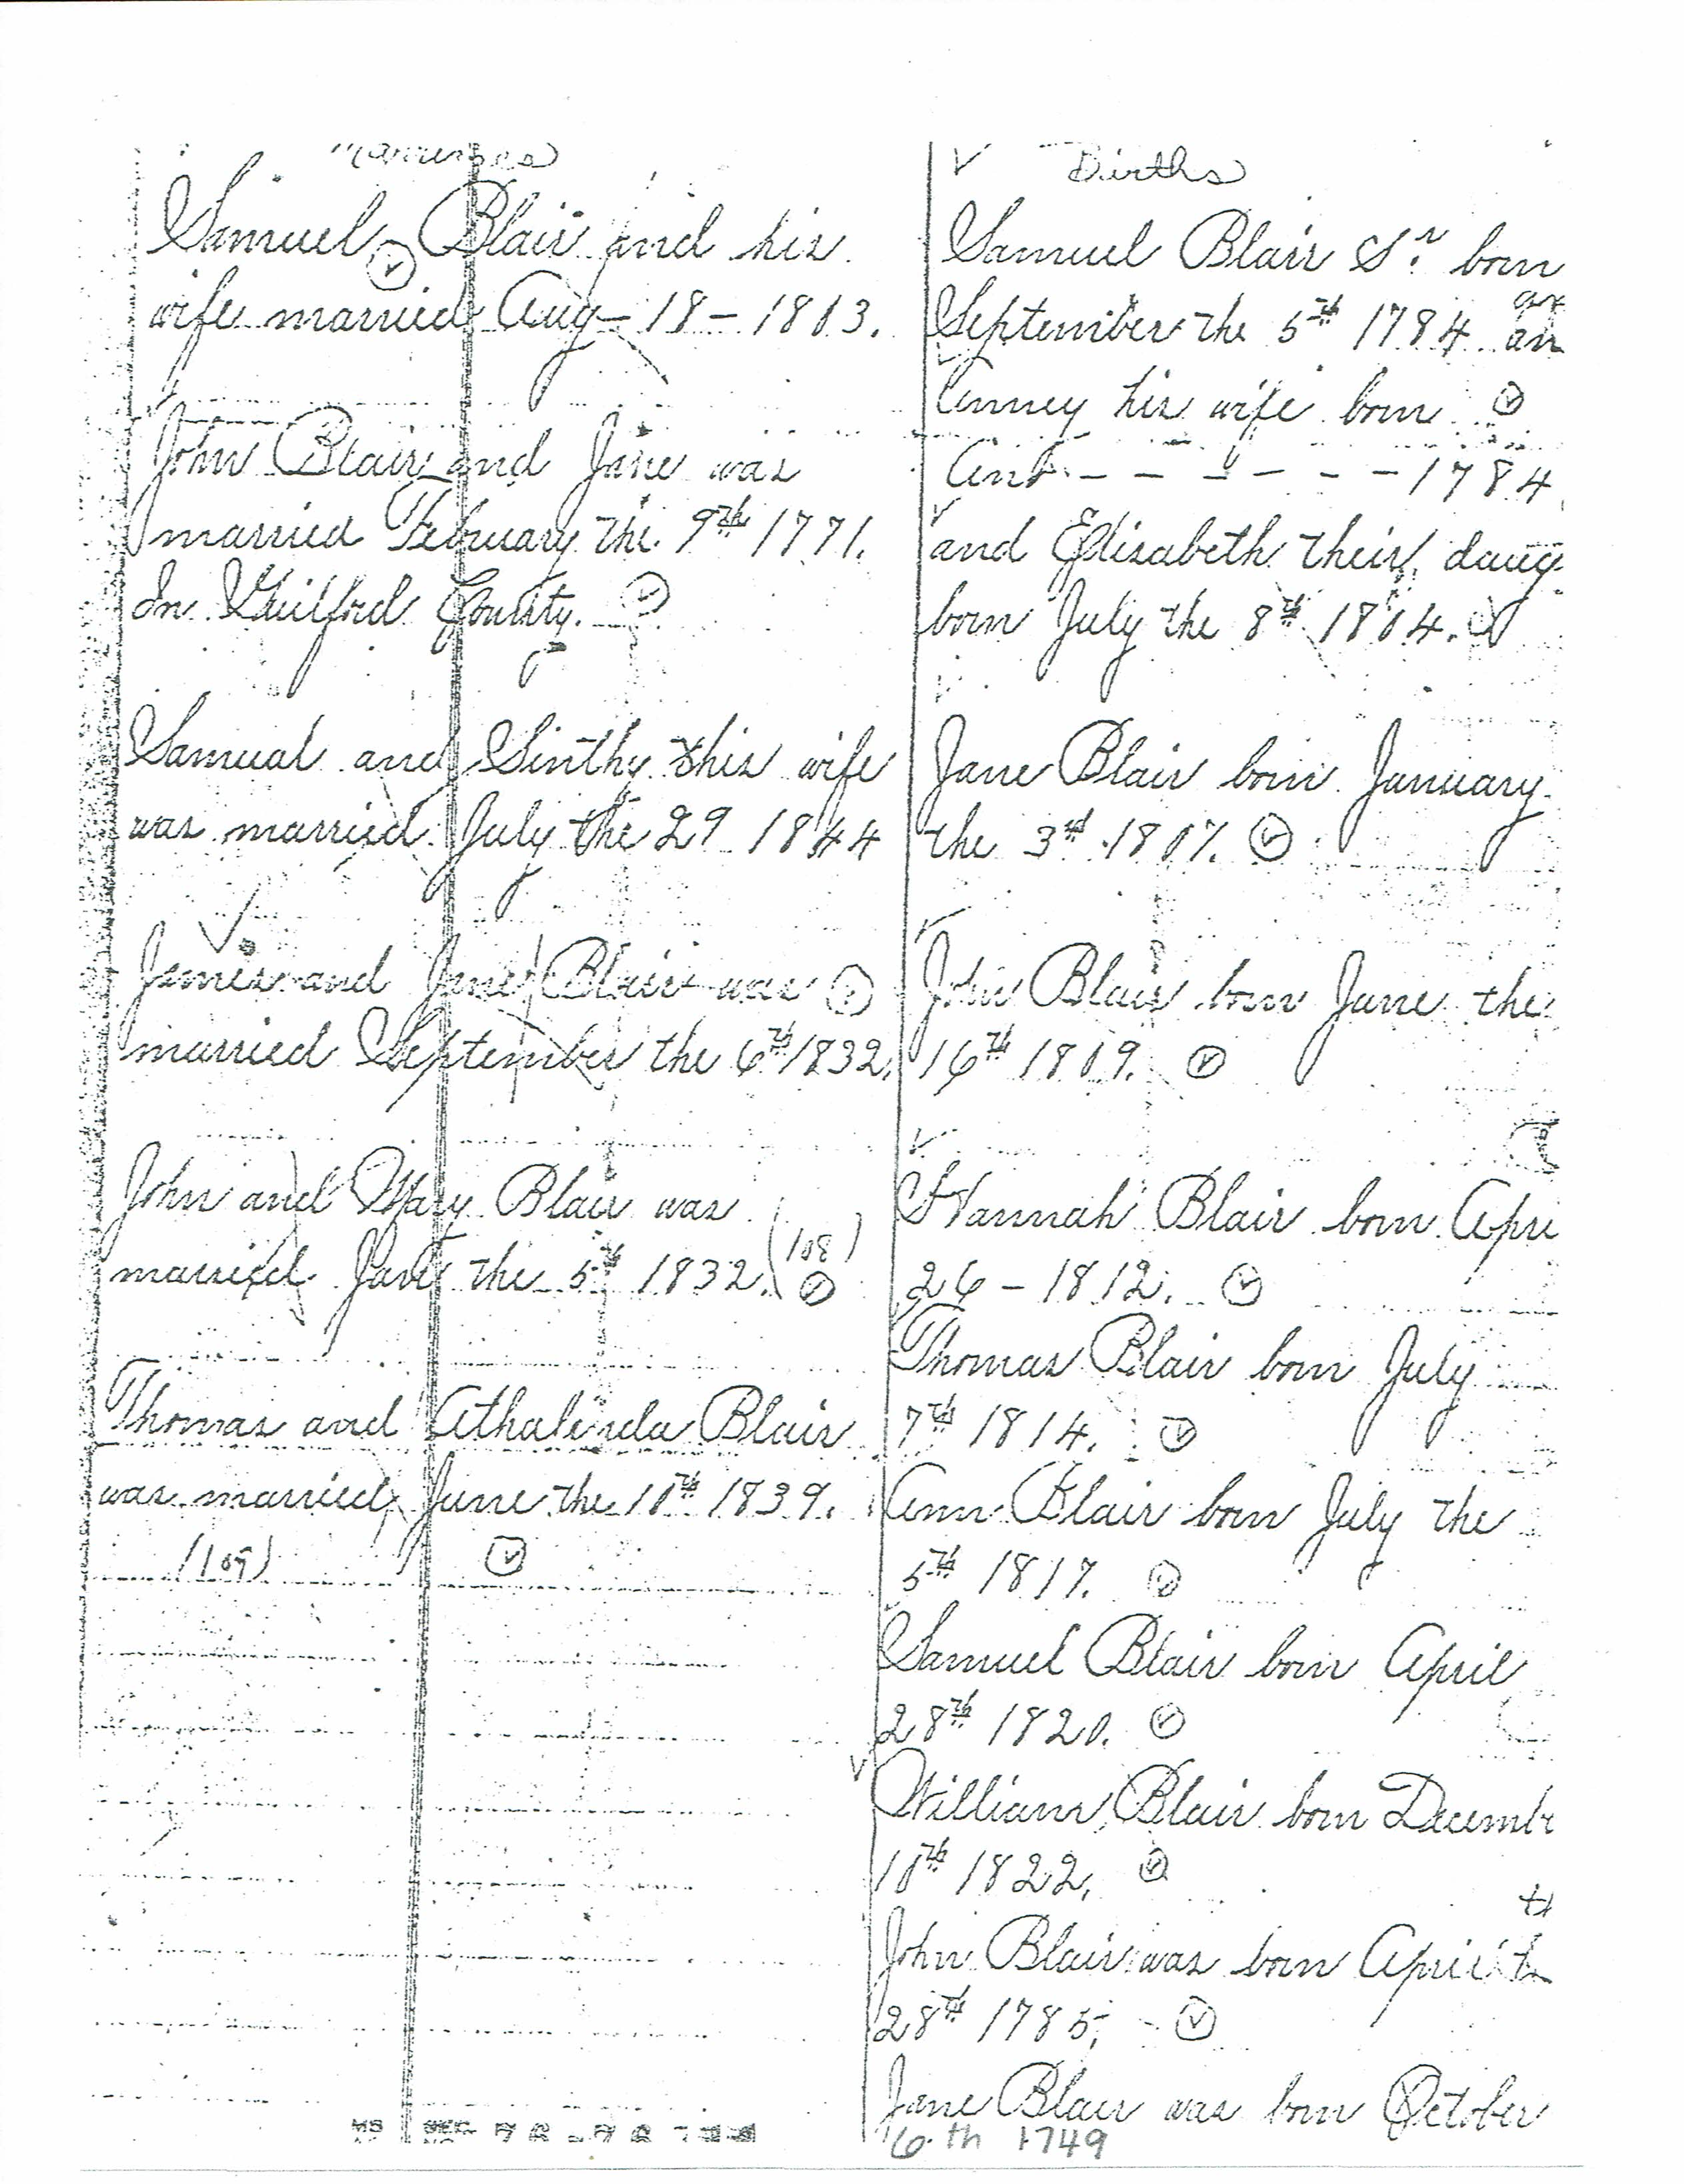 Marriages
Samuel Blair and his
wife married Aug - 18 - 1803.
John Blair and Jane was
married February the 9th 1771.
In Guilford County.
Samual and Sinthy this wife
was married July the 29 1844
James and Jane Blair was
married September the 6th 1832.
John and Mary Blair was
married the 5th 1832. (108)
Thomas and Athalinda Blair
was married June the 10th 1839.
(109)
Births
Samuel Blair Sr. born
September the 5th 1784 an
Anney his wife born
- - - - - - 1784
and Elisabeth their daug
born July the 8th 1804.
Jane Blair born January
the 3rd 1807.
John Blair born June the
16th 1809.
Hannah Blair born Apri
26 - 1812.
Thomas Blair born July
7th 1814.
Ann Blair born July the
5th 1817.
Samuel Blair born April
28th 1820.
William Blair born Decembe
10th 1822.
John Blair was born April th
28th 1785.
Jane Blair was born October
6th 1749